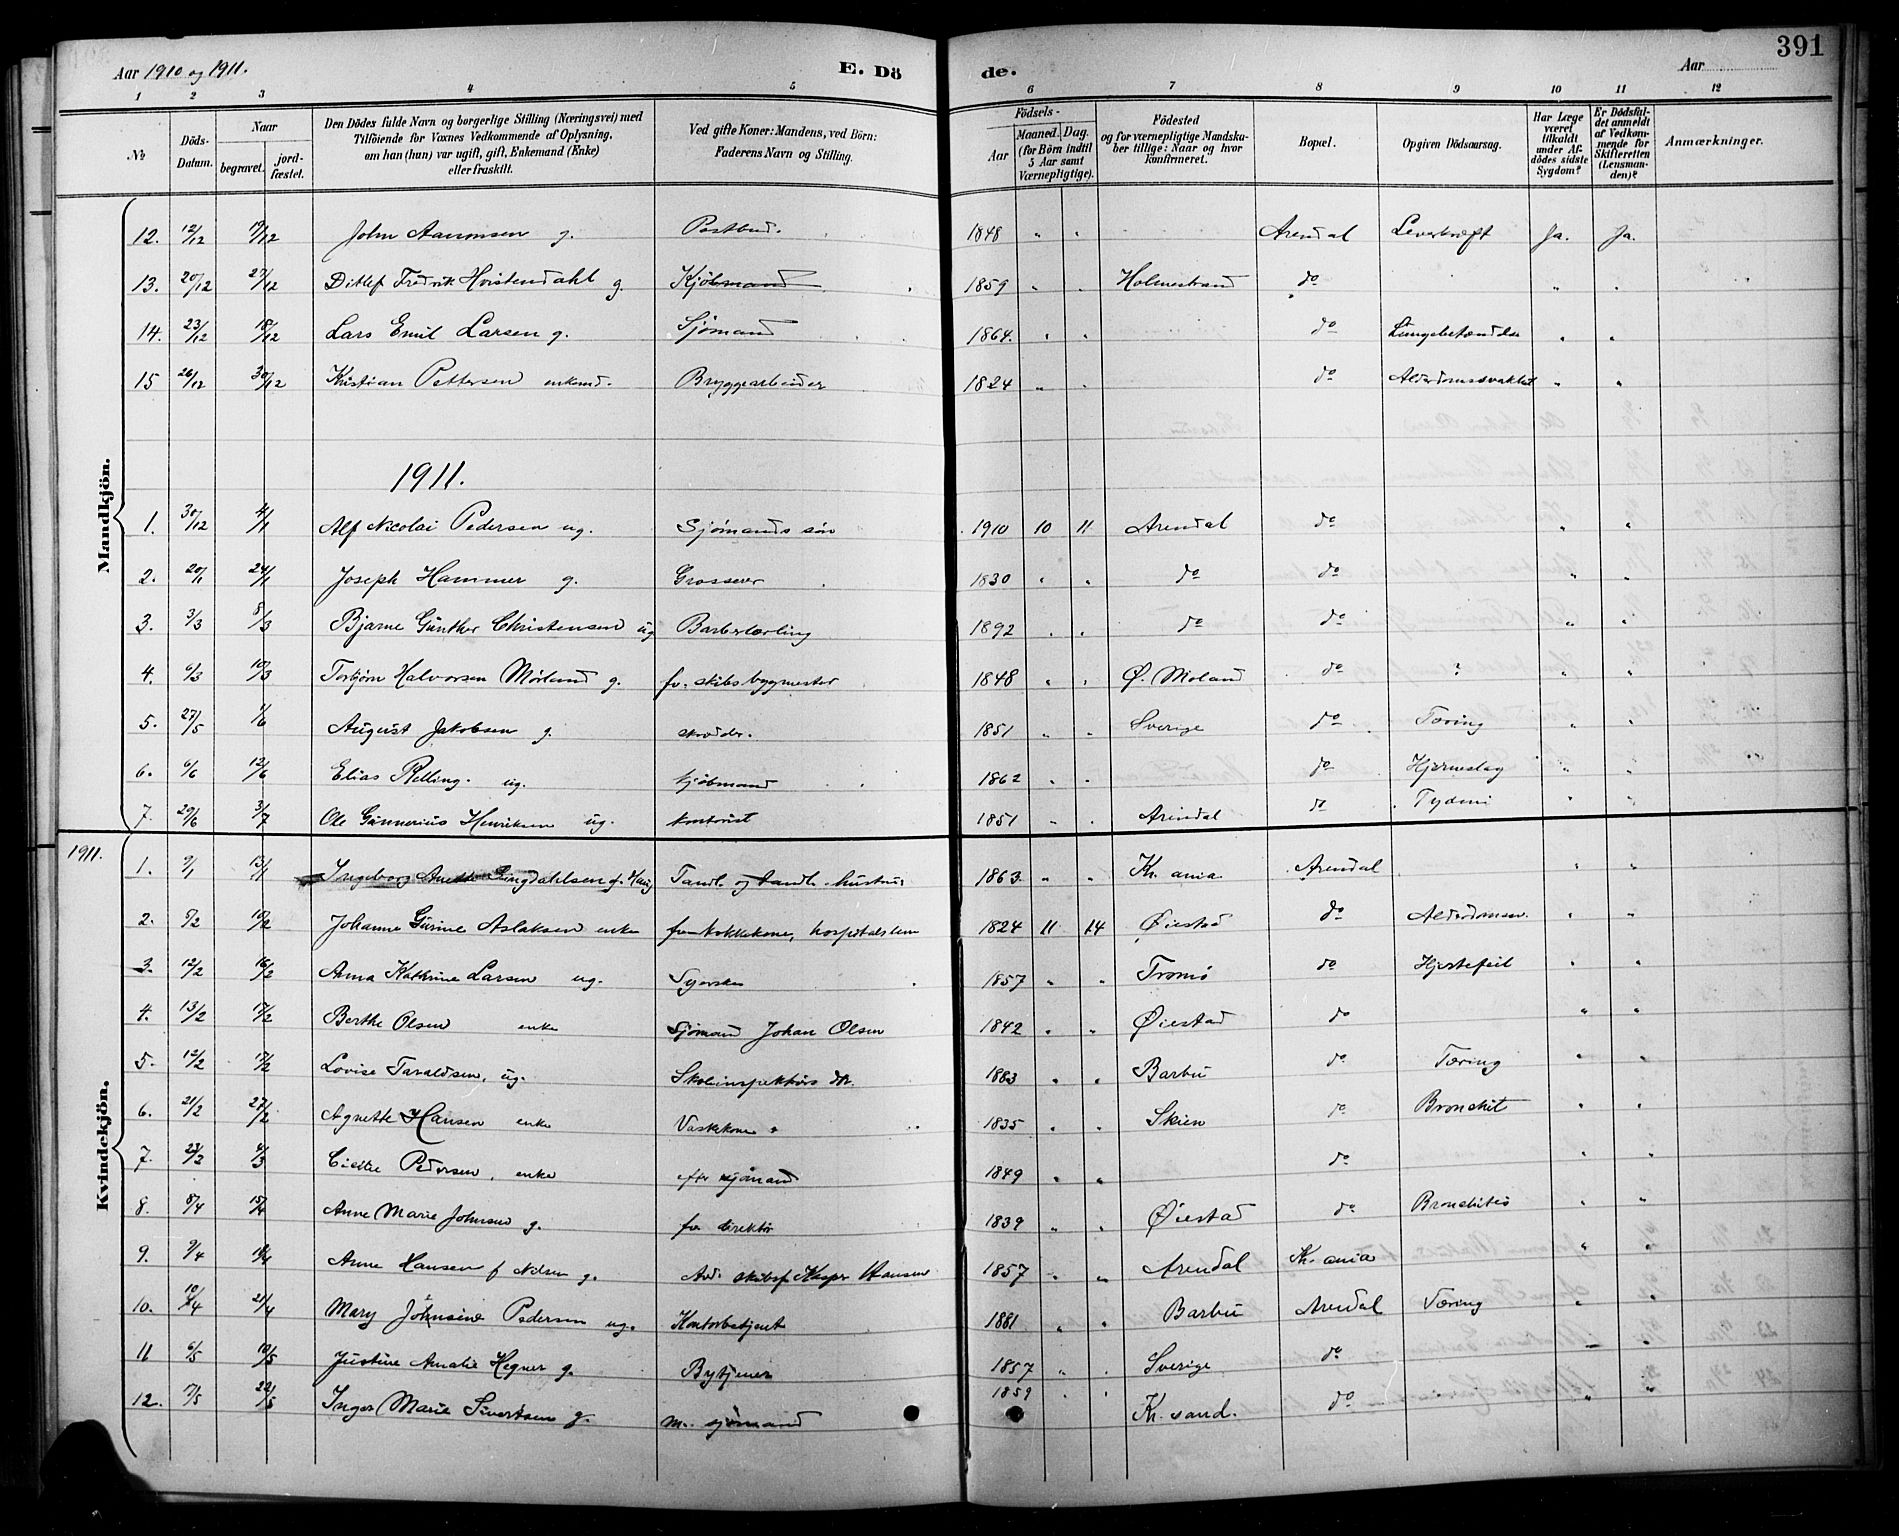 391
Aar 1910 og 1911. E. Dö de. Aar
1 2 3 4 5 6 7 8 9 10 11 12
№ Döds-Datum. Naar begravet. jord-fæstet. Den Dödes fulde Navn og borgerlige Stilling (Næringsvei) med Tilföiende for Voxnes Vedkommende af Oplysning, om han (hun) var ugift, gift, Enkemand (Enke) eller fraskilt. Ved gifte Koner: Mandens, ved Börn: Faderens Navn og Stilling. Födsels- Aar Maaned. Dag. (for Börn indtil 5 Aar samt Værnepligtige). Födested og for værnepligtige Mandskaber tillige: Naar og hvor konfirmeret. Bopæl. Opgiven Dödsaarsag. Har Læge været tilkaldt under Afdödes sidste Sygdom? Er Dödsfaldet anmeldt af Vedkommende for Skifteretten (Lensmanden)? Anmærkninger.
Mandkjön.
12. 12/12 17/12 John Aanonsen g. Postbud. 1848 " " Arendal Leverkræft Ja. Ja.
13. 20/12 27/12 Ditlef Fredrik Hvistendahl g. Kjöbmand 1859 " " Holmestrand do " "
14. 23/12 18/12 Lars Emil Larsen g. Sjömand 1864. " " do Lungebetændelse " "
15 26/12 30/12 Kristian Pettersen enkemd. Bryggearbeider 1824 " " do Alderdomssvakhet " "
1911.
1. 30/12 4/1 Alf Nicolai Pedersen ug. Sjömands sön 1910 10 11 Arendal do " "
2. 20/1 24/1 Joseph Hammer g. Grosserer 1830 " " do do " "
3. 3/3 8/3 Bjarne Günther Christensen ug Barberlærling 1892 " " do do " "
4. 6/3 10/3 Torbjörn Halvorsen Mörland g. fv. skibsbyggmester 1848 " " Ø. Moland do ? " "
5. 27/5 1/6 August Jakobsen g. skrædder. 1851 " " Sverige do Tæring " "
6. 6/6 12/6 Elias Relling. ug. kjöbmand 1862 " " do Hjerneslag " "
7. 29/6 3/7 Ole Gunnerius Henriksen ug. kontorist 1851 " " Arendal do " "
1911.
Kvindekjön.
1. 9/1 13/1 Ingeborg Anette Lingdahlsen f. Tandl. og tandl. hustru 1863. " " Kr. ania Arendal " "
2. 5/2 10/2 Johanne Gurine Aslaksen enke hospitalslem 1824 11 14 Øiestad do " "
3. 12/2 16/2 Anna Kathrine Larsen ug. Syerske 1857 " " Tromö do Hjertefeil " "
4. 13/2 17/2 Berthe Olsen enke Sjömand Johan Olsen 1842 " " Øiestad do " "
5. 12/2 17/2 Lovise Taraldsen, ug. Skoleinspektörs dtr. 1883 " " Barbu do Tæring " "
6. 21/2 27/2 Agnette Hansen enke Vaskekone 1835 " " Skien do Bronchit " "
7. 4/3 Pedersen, enke efter sjömand 1849 " " do " "
8. 8/4 15/4 Anne Marie Johnsen g. fv. direktör 1839 " " Øiestad do Bronchites " "
9. 9/4 Anne Hansen f Nilsen g. skibsf. Kasper Hansen 1857 " " Arendal Kr. ania " "
10. 21/4 Mary Johnsine Pedersen ug. Kontorbetjent 1881 " " Barbu Arendal Tæring " "
11 6/5 10/5 Justine Amalie Hegner g. Bytjener 1857 " " Sverige do " "
12. 17/5 22/5 Inger Marie Sivertsen g. m. sjömand 1859 " " Kr. sand. do " "